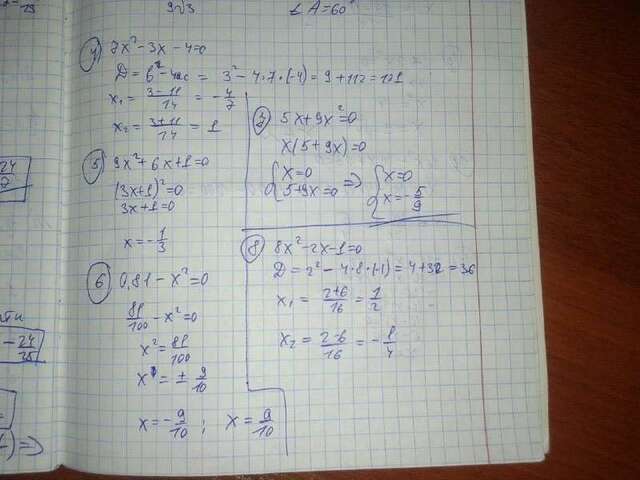 9√3
∠A=60°
4) 7x²-3x-4=0
D=b²-4ac = 3²-4·7·(-4)=9+112=121
x₁=(3-11)/14=-4/7
x₂=(3+11)/14=1
5) 9x²+6x+1=0
(3x+1)²=0
3x+1=0
x=-1/3
6) 0,81-x²=0
81/100-x²=0
x²=81/100
x=±9/10
x=-9/10; x=9/10
7) 5x+9x²=0
x(5+9x)=0
{x=0
5+9x=0 => {x=0
x=-5/9
8) 8x²-2x-1=0
D=2²-4·8·(-1)=4+32=36
x₁=(2+6)/16=1/2
x₂=(2-6)/16=-1/4
24/7
-24/25